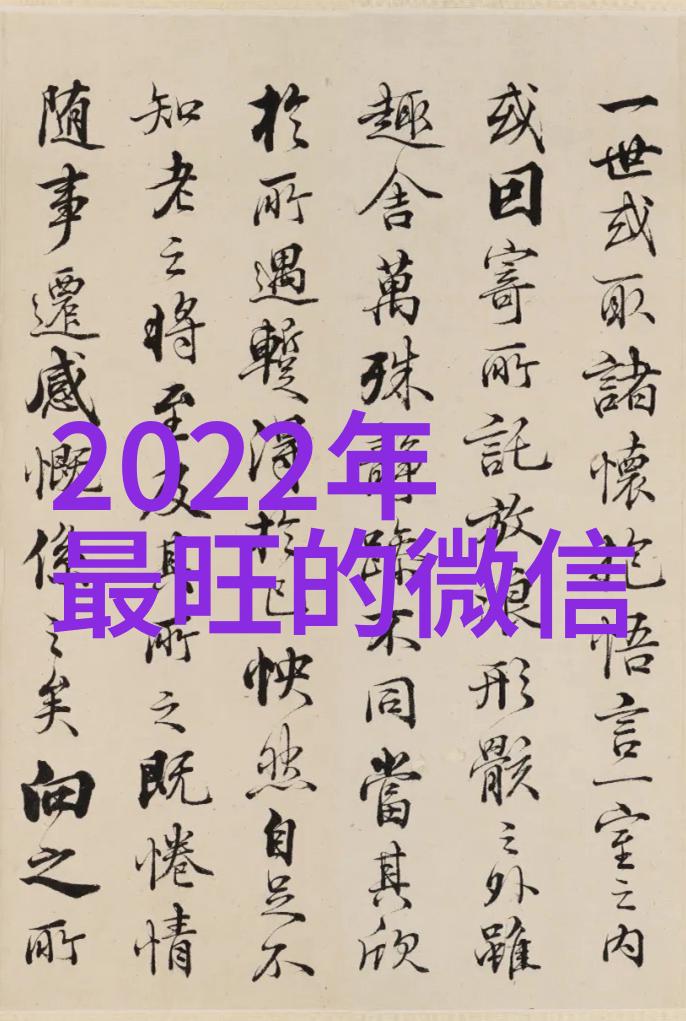 一世或取諸懷抱悟言一室之内
或因寄所託放浪形骸之外雖
趣舍萬殊静躁不同當其欣
於所遇蹔得於己怏然自足不
知老之將至及其所之既惓情
随事遷感慨係之矣向之所
2022年
最旺的微信